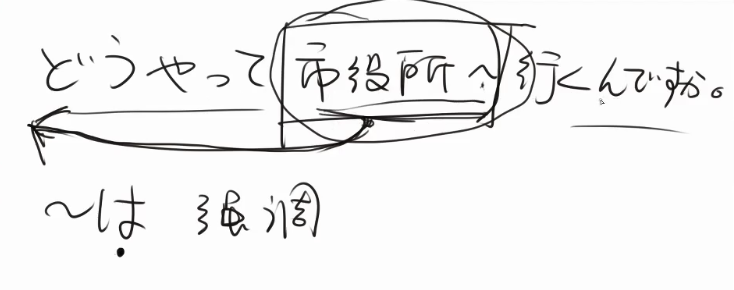 どうやって市役所へ行くんですか。
〜は 強調